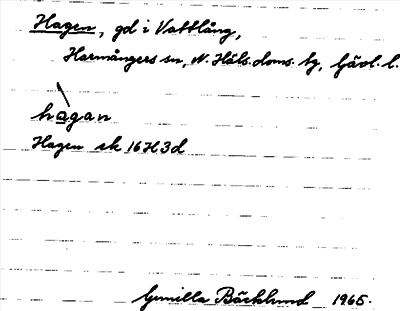 Hagen, gd i Vattlång,
Harmångers sn, N. Häls. doms. hg, Gävl. l.
hagan
Hagen ek 16H3d
Gunilla Bäcklund 1965.